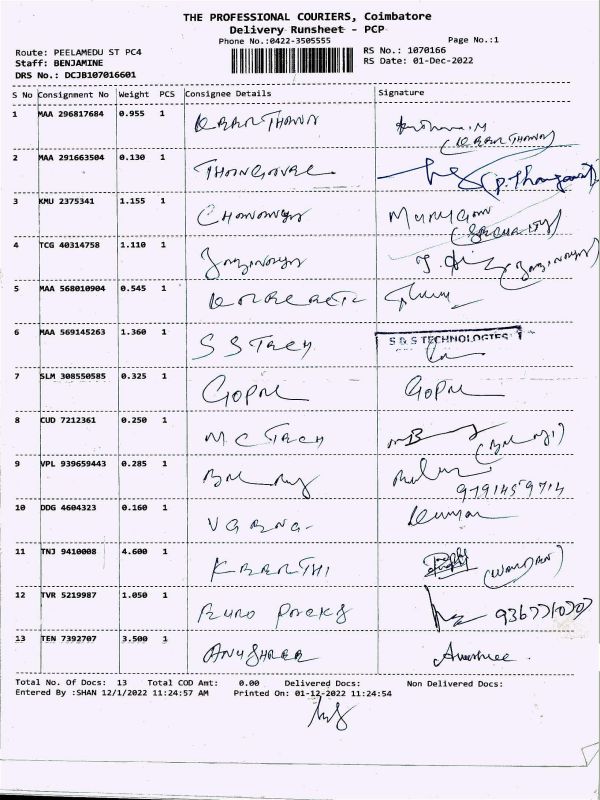 THE PROFESSIONAL COURIERS, Coimbatore
Delivery Runsheet - PCP
Phone No.:0422-3505555 Page No.:1
Route: PEELAMEDU ST PC4 RS No.: 1070166
Staff: BENJAMINE RS Date: 01-Dec-2022
DRS No.: DCJB107016601
S No Consignment No Weight PCS Consignee Details Signature
1 MAA 296817684 0.955 1
2 MAA 291663504 0.130 1 (P. Thangavel)
3 KMU 2375341 1.155 1 MURUGAN
(SECURITY)
4 TCG 40314758 1.110 1
5 MAA 568010904 0.545 1
6 MAA 569145263 1.360 1 S S TECH S & S TECHNOLOGIES
7 SLM 308550585 0.325 1 GOPAL GOPAL
8 CUD 7212361 0.250 1 M C TECH
9 VPL 939659443 0.285 1
9791459714
10 DDG 4604323 0.160 1 V G ENG.
11 TNJ 9410008 4.600 1 KEERTHI
12 TVR 5219987 1.050 1 EURO PACKS
13 TEN 7392707 3.500 1 ANUSHREE Anushree
Total No. Of Docs: 13 Total COD Amt: 0.00 Delivered Docs: Non Delivered Docs:
Entered By :SHAN 12/1/2022 11:24:57 AM Printed On: 01-12-2022 11:24:54